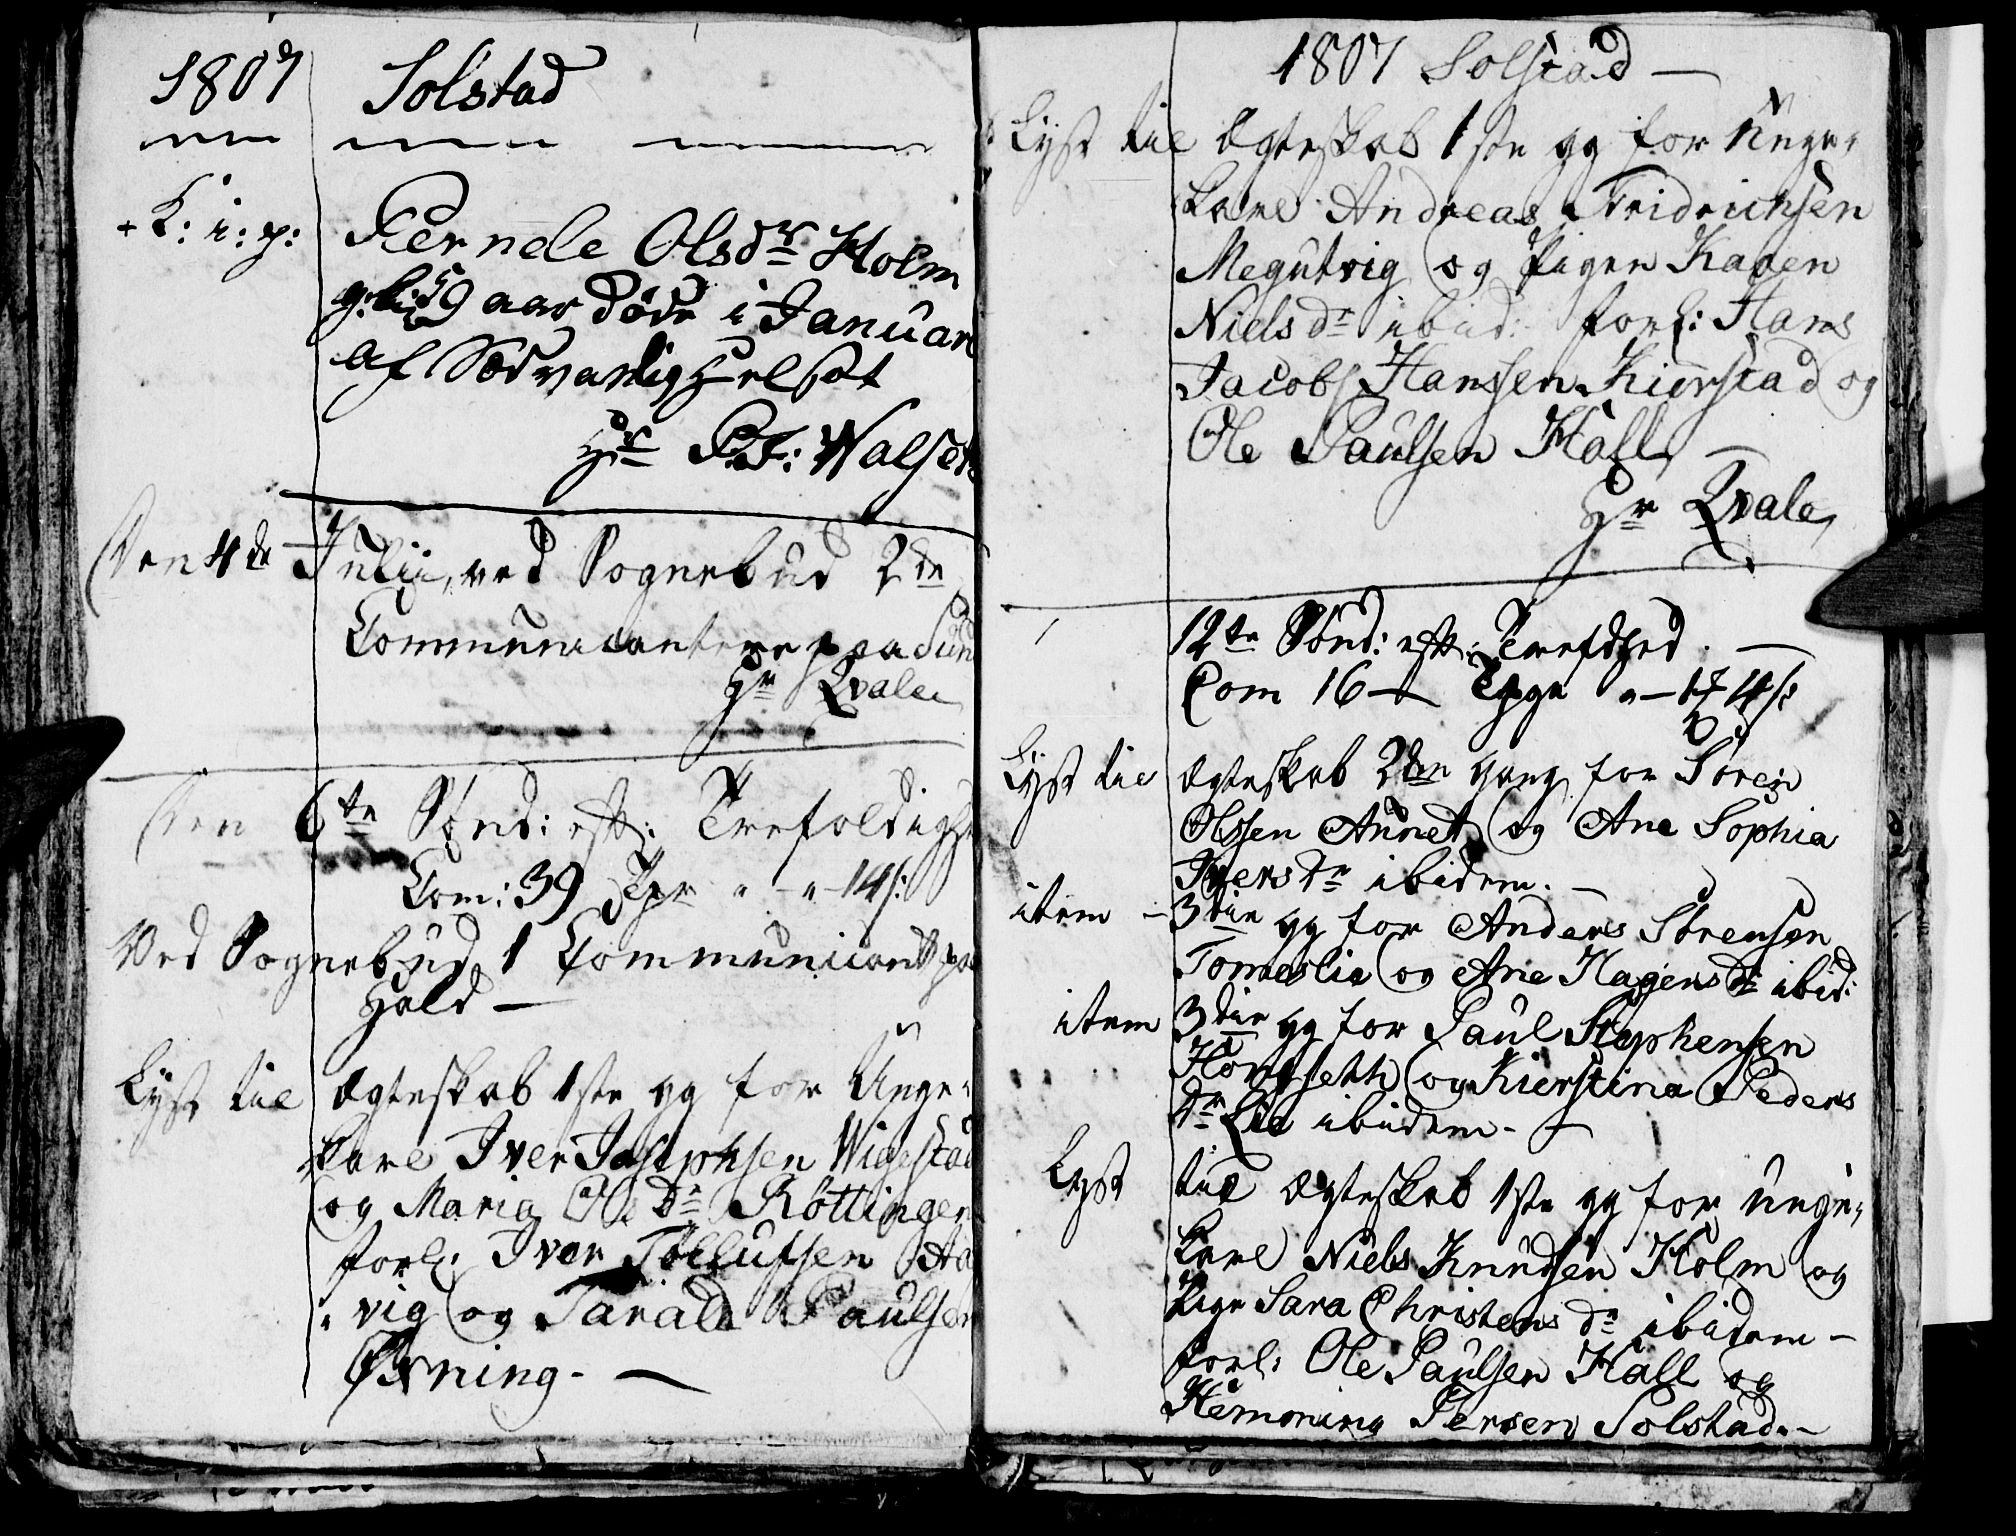 1807 Solstad
+ K: i: p: Pernele Olsdr Holm
g: 59 aar døde i Januar
af Sædvanlig
Hr P: J: Walset
Den 4de Julii, ved Sognebud 2de
Communicantere paa Sund
Hr Qvale
Den 6te Sønd: eft: Trefoldighe
Com: 39 Tgr " - " - 14 s:
Ved Sognebud 1 Communicant paa
Hald —
Lyst til Ægteskab 1ste gg for Unge-
karl Iver Josephsen Wigestad
og Maria Ols Dr Röttingen
forl: Iver Tollufsen
vig og Tarald Paulsen
Ørning. —
1807 Solstad —
Lyst til Ægteskab 1ste gg for Unge-
karl Andreas Fridrichsen
Megutvig og Pigen Karen
Niels dr ibid: forl: Hans
Jacob Hanssen Kierstad og
Ole Paulsen Hall —
Hr Qvale
12te Sønd: eft: Trefdhed. —
Com 16 — Tgr " — 14 s:
Lyst til Ægteskab 2den gang for Sören
Olssen Aunet og Ane Sophia
Ivers dr ibidem. —
item — 3die gg for Anders Sörensen
Tomeslie og Ane Hagens dr ibid:
item 3die gg for Paul Stephensen
Hongseth og Kierstina Peders
dr Lie ibidem. —
Lyst til Ægteskab 1ste gg for Unge-
karl Niels Knudsen Holm og
Pige Sara Christens dr ibidem —
forl: Ole Paulsen Hall og
Hemming Persen Solstad. —